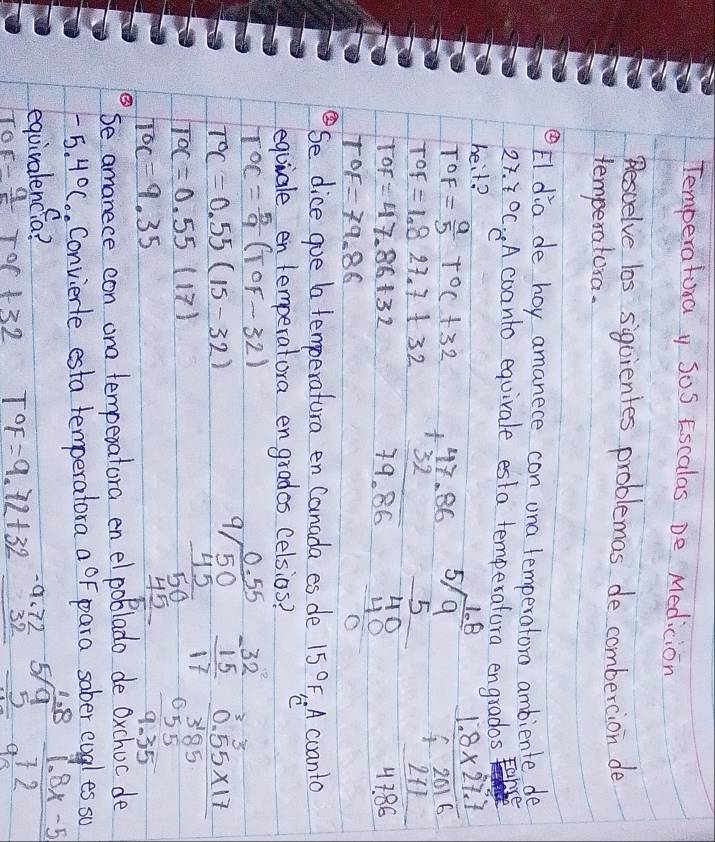 Temperatura y sus Escalas De Medición
Resuelve los siguientes problemas de combercion de
temperatura.
① El día de hoy amanece con una temperatura ambiente de
27.7°C ¿A cuanto equivale esta temperatura en grados Fahre
heit?
T°F = 9/5 T°C + 32
T°F = 1.8 27.7 + 32
T°F = 47.86 + 32
T°F = 79.86
47.86
+ 32
79.86
1.8
5/9
5
40
40
0
1.8 x 27.7
2016
+ 277
47.86
② Se dice que la temperatura en Canada es de 15°F ¿A cuanto
equivale en temperatura en grados Celsius?
T°C = 5/9 (T°F - 32)
T°C = 0.55 (15 - 32)
T°C = 0.55 (17)
T°C = 9.35
0.55
9/50
45
50
45
-32
15
17
0.55 x 17
385
055
9.35
③ Se amanece con una temperatura en el poblado de Oxchuc de
-5.4°C. Convierte esta temperatura a °F para saber cual es su
equivalencia?
T°F = 9/5 T°C + 32
T°F = 9.72 + 32
-9.72
32
1.8
5/9
5
1.8 x -5
72